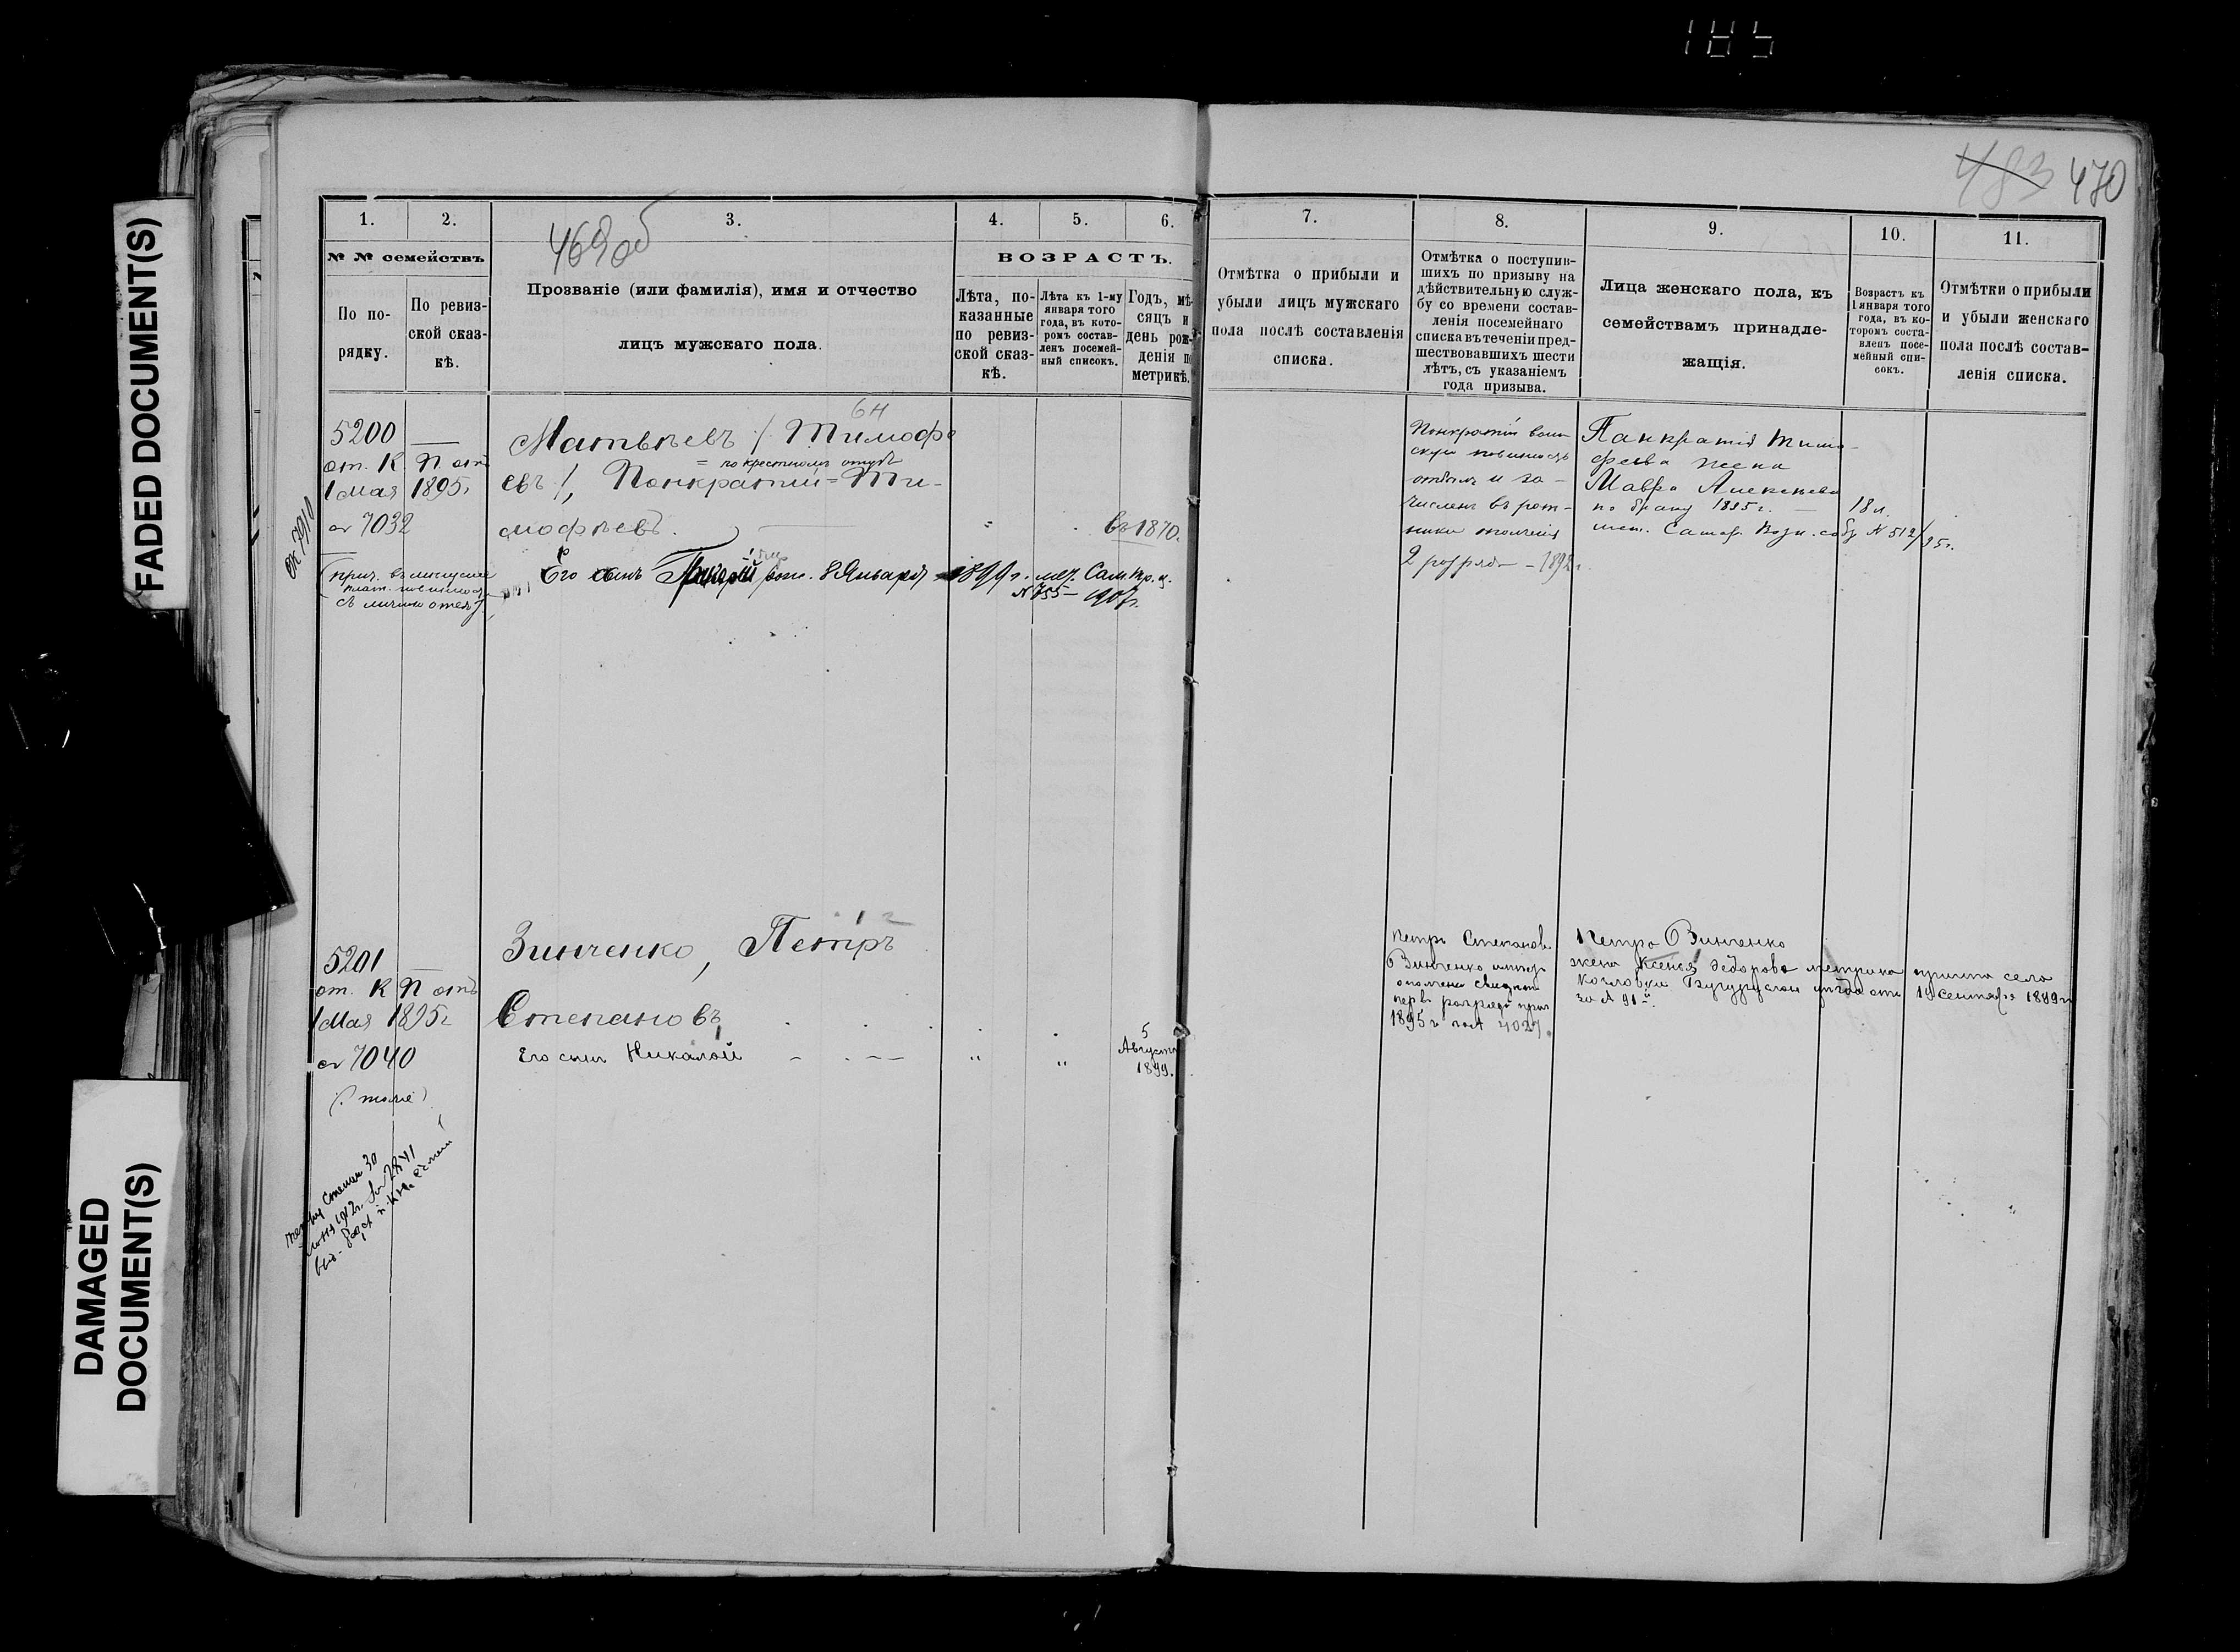 185
483 470
469 об
FADED DOCUMENT(S)
DAMAGED
DOCUMENT(S)
1. 2. 3. 4. 5. 6. 7. 8. 9. 10. 11.
№ № семействъ
По по-
рядку.
По ревиз-
ской сказ-
кѣ.
Прозваніе (или фамилія), имя и отчество
лицъ мужскаго пола.
ВОЗРАСТЪ.
Лѣта, по-
казанные
по ревиз-
ской сказ-
кѣ.
Лѣта къ 1-му
января того
года, въ кото-
ромъ состав-
ленъ посемей-
ный списокъ.
Годъ, мѣ-
сяцъ и
день рож-
денія по
метрикѣ.
Отмѣтка о прибыли и
убыли лицъ мужскаго
пола послѣ составленія
списка.
Отмѣтка о поступив-
шихъ по призыву на
дѣйствительную служ-
бу со времени состав-
ленія посемейнаго
списка въ теченіи пред-
шествовавшихъ шести
лѣтъ, съ указаніемъ
года призыва.
Лица женскаго пола, къ
семействамъ принадле-
жащія.
Возрастъ къ
1 января того
года, въ ко-
торомъ соста-
вленъ посе-
мейный спи-
сокъ.
Отмѣтки о прибыли
и убыли женскаго
пола послѣ состав-
ленія списка.
5200 —
от. К. П. отъ
1 Мая 1895г
7032
Матвѣевъ / Тимофе
= по крестному отцѣ
евъ /, Понкратій = Ти-
мофѣевъ.
въ 1870.
Его сынъ рож. 8 Января 1899 г. мет. Сам.
N 755 — 1907г.
Понкратій воин
скую повинность
отбылъ и за-
численъ въ рат-
ники ополченія
2 разряда — 1892г
Панкратія Тимо-
феева жена
Мавра Алексѣева
по браку 1895г. —
18 л.
N 512/95г.
5201 —
от. К П отъ
1 Мая 1895г
7040
(тоже)
Зинченко, Петръ
Степановъ
Его сынъ Николай — " "
5
Августа
1899.
Петръ Степанов.
Зинченко
1895 г
4027
Петра Зинченко
жена Ксенья Федорова метрика причта села
Козловки Бугурусланск уѣзда отъ 19 Сентября 1899г
за № 91й